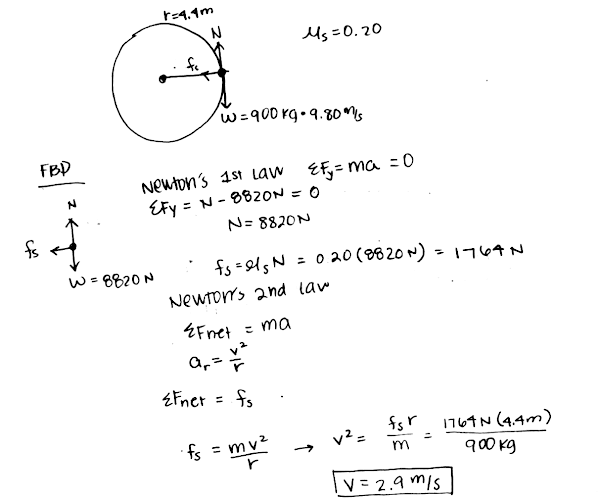 r=4.4m
N
μs=0.20
fs
W=900kg·9.80m/s
FBD
Newton's 1st Law ΣFy=ma=0
ΣFy = N - 8820N = 0
N
N=8820N
fs
W=8820N
fs=μsN = 0.20(8820N) = 1764N
Newton's 2nd law
ΣFnet = ma
ar = v²/r
ΣFnet = fs
fs = mv²/r → v² = fsr/m = 1764N(4.4m)/900kg
V=2.9m/s